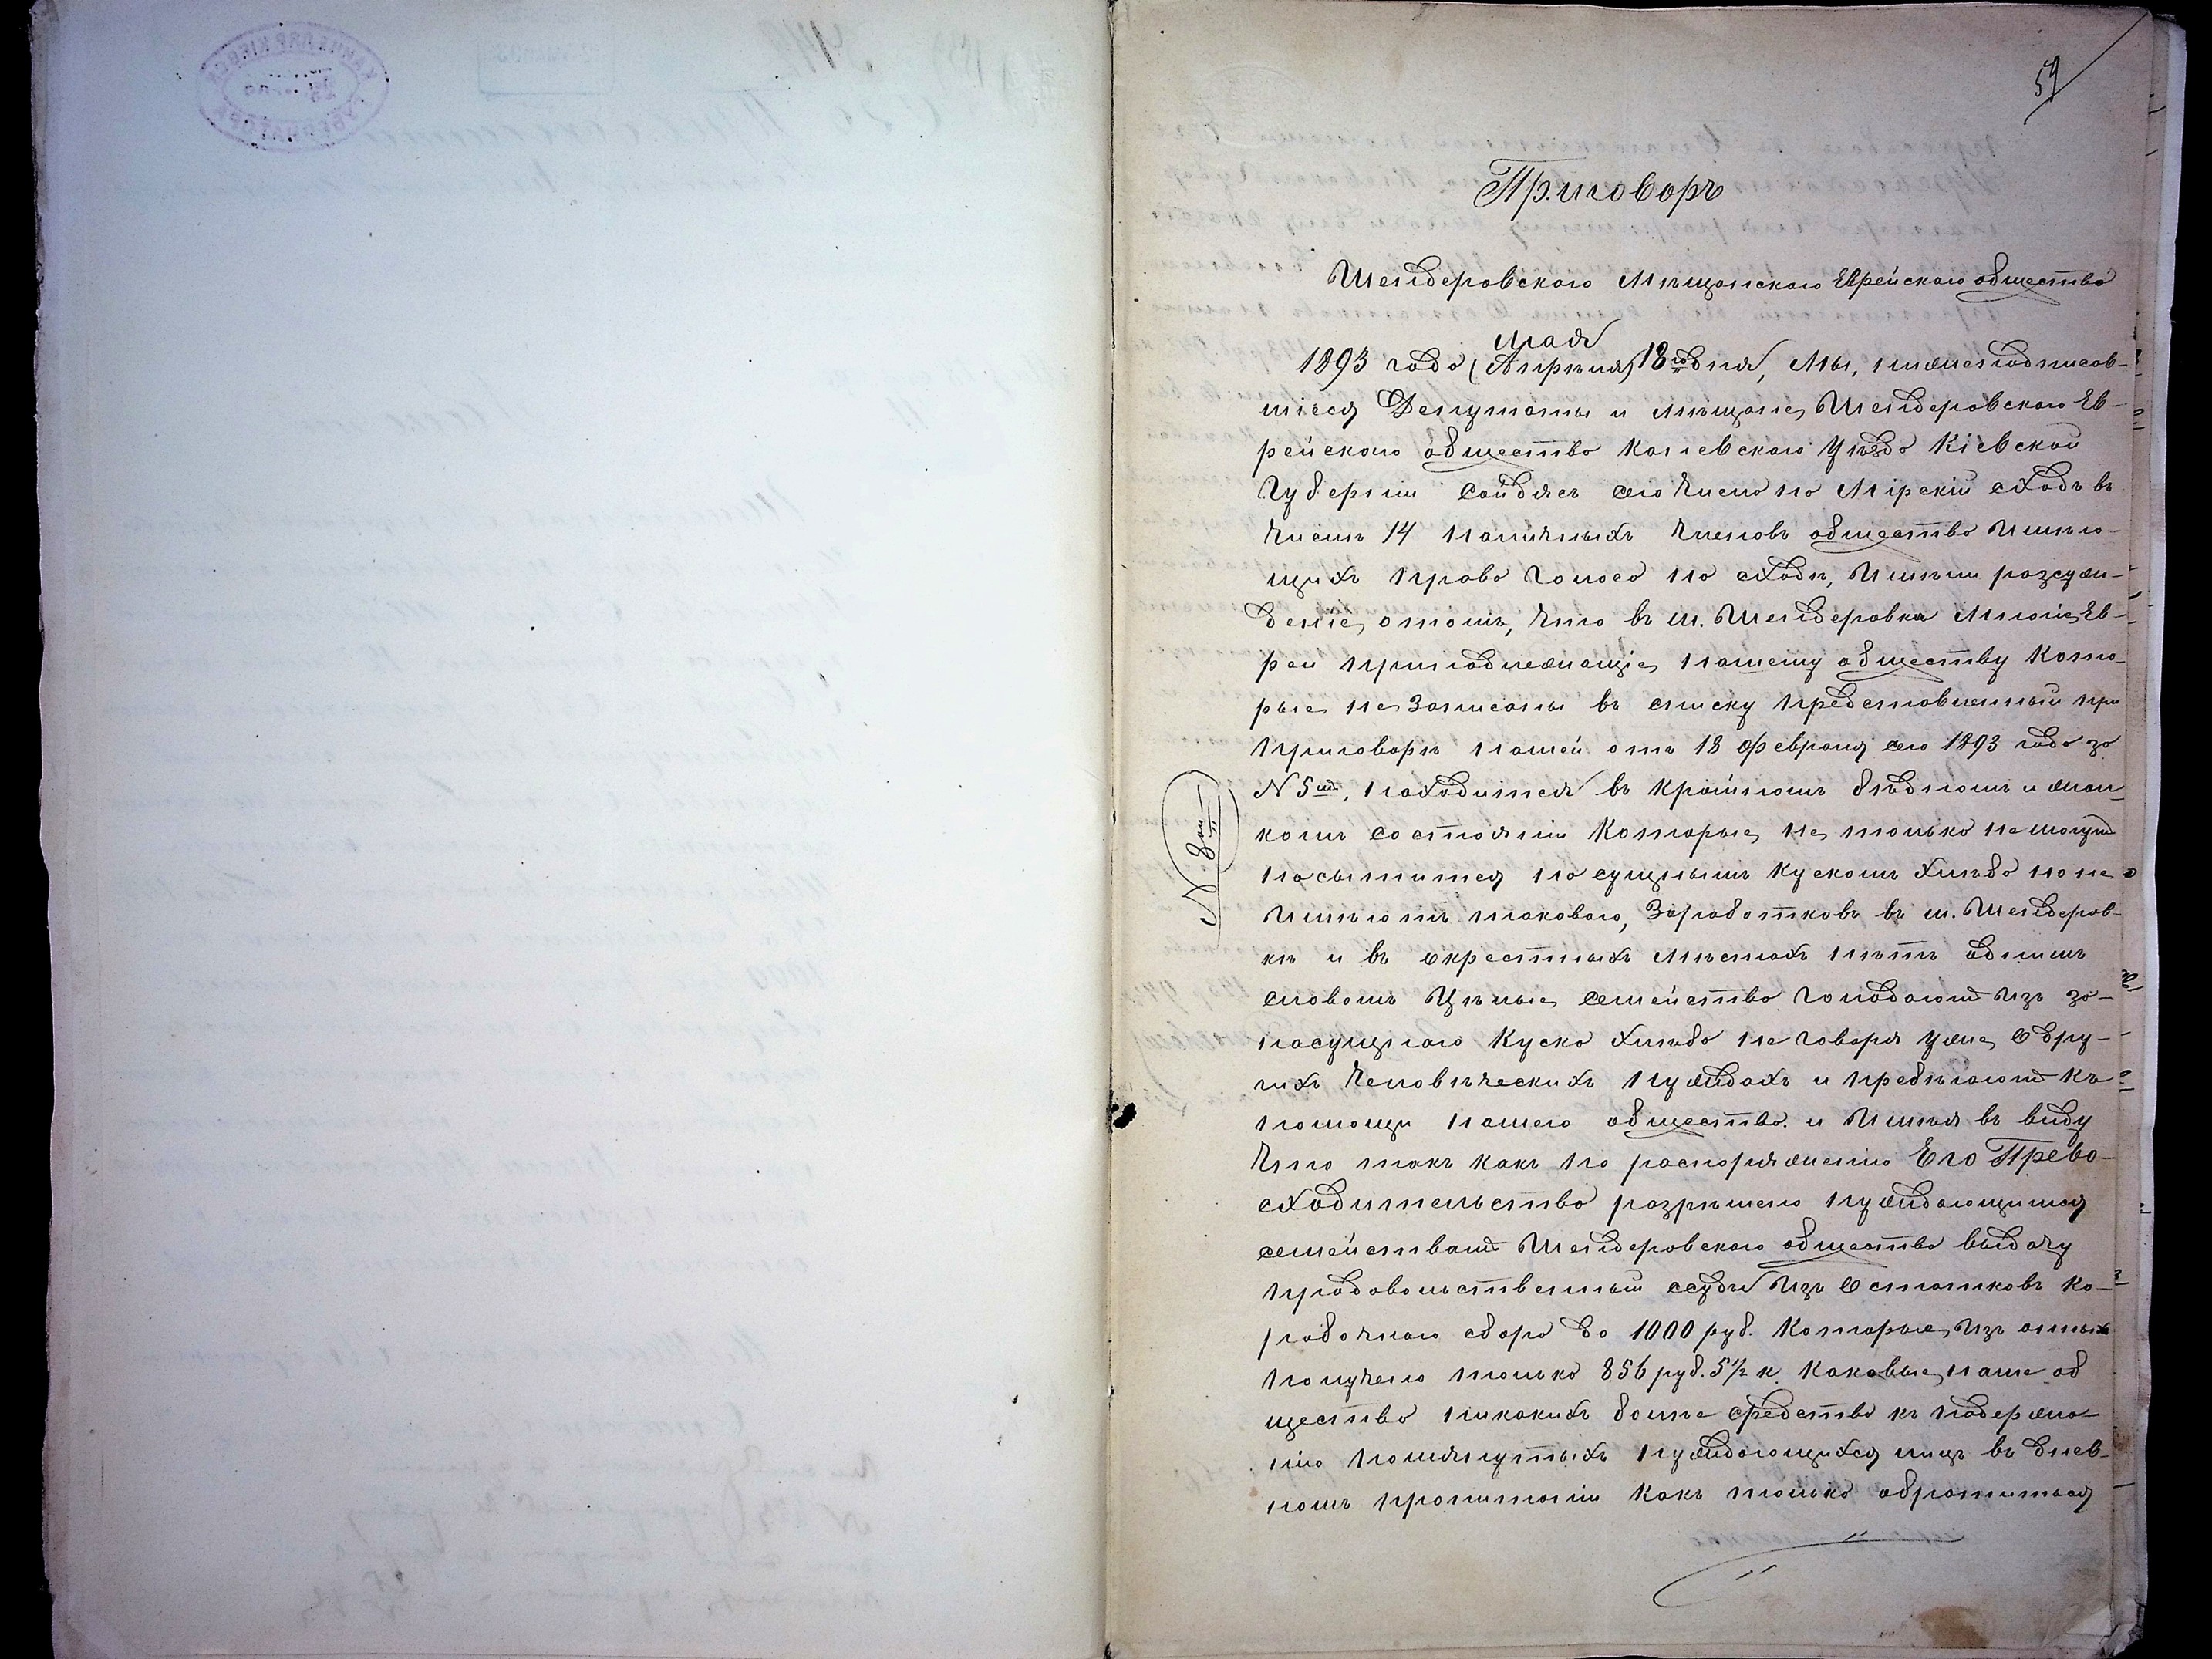 59
Приговоръ
Шендеровскаго Мѣщанскаго Еврейскаго общества
мая
1893 года (Апрѣля) 18го дня, Мы, нижеподписав-
шіеся Депутаты и мѣщане Шендеровскаго Ев-
рейскаго общества Каневскаго Уѣзда Кіевской
Губерніи Сойдясъ сего числа на Мірскій сходъ въ
числѣ 14 наличныхъ членовъ общества Имѣю-
щихъ право голоса на сходѣ, Имѣли разсуж-
деніе отомъ, что въ м. Шендеровка Многіе Ев-
реи принадлежащіе нашему обществу Кото-
рые не Записаны въ списку представленный при
приговорѣ нашей отъ 18 февраля сего 1893 года за
N 5мъ, находится въ крайномъ бѣдномъ и жал-
комъ состояніи Которые не только не могутъ
насытится насущнымъ кускомъ хлѣба но не
Имѣютъ таковаго, Заработковъ въ м. Шендеров-
кѣ и въ окрестныхъ мѣстахъ нѣтъ однимъ
словомъ Цѣлые семейства голодаютъ Изъ за-
насущнаго Куска хлѣба не говоря уже О дру-
гихъ человѣческихъ нуждахъ и пребѣгаютъ къ
помощи нашего общества. и Имѣя въ виду
что такъ какъ по распоряженію Его Прево-
сходительства разрѣшено нуждающимся
семействамъ Шендеровскаго общества выдачу
продовольственный ссуды Изъ Остатковъ Ко-
робочнаго сбора до 1000 руб. Которые Изъ оныхъ
получено только 856 руб. 5½ к. Каковые наше об
щество никакихъ больше средства къ подержа-
нію помянутыхъ нуждающихся лицъ въ днев-
номъ пропитаніи Какъ только обратиться